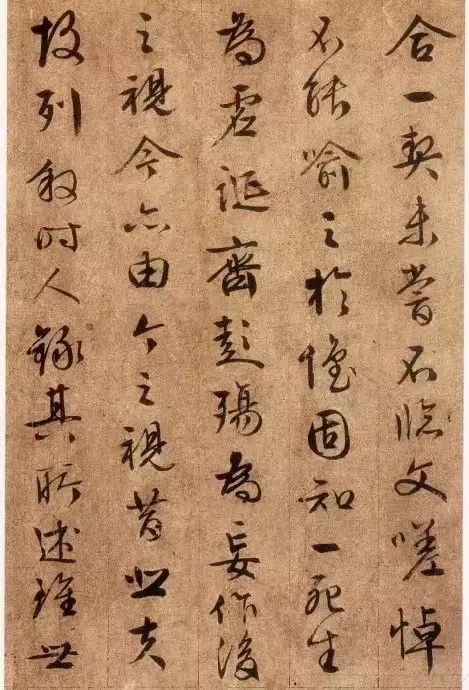 合一契未嘗不臨文嗟悼
不能喻之於懷固知一死生
為虛誕齊彭殤為妄作後
之視今亦由今之視昔悲夫
故列敘時人錄其所述雖世